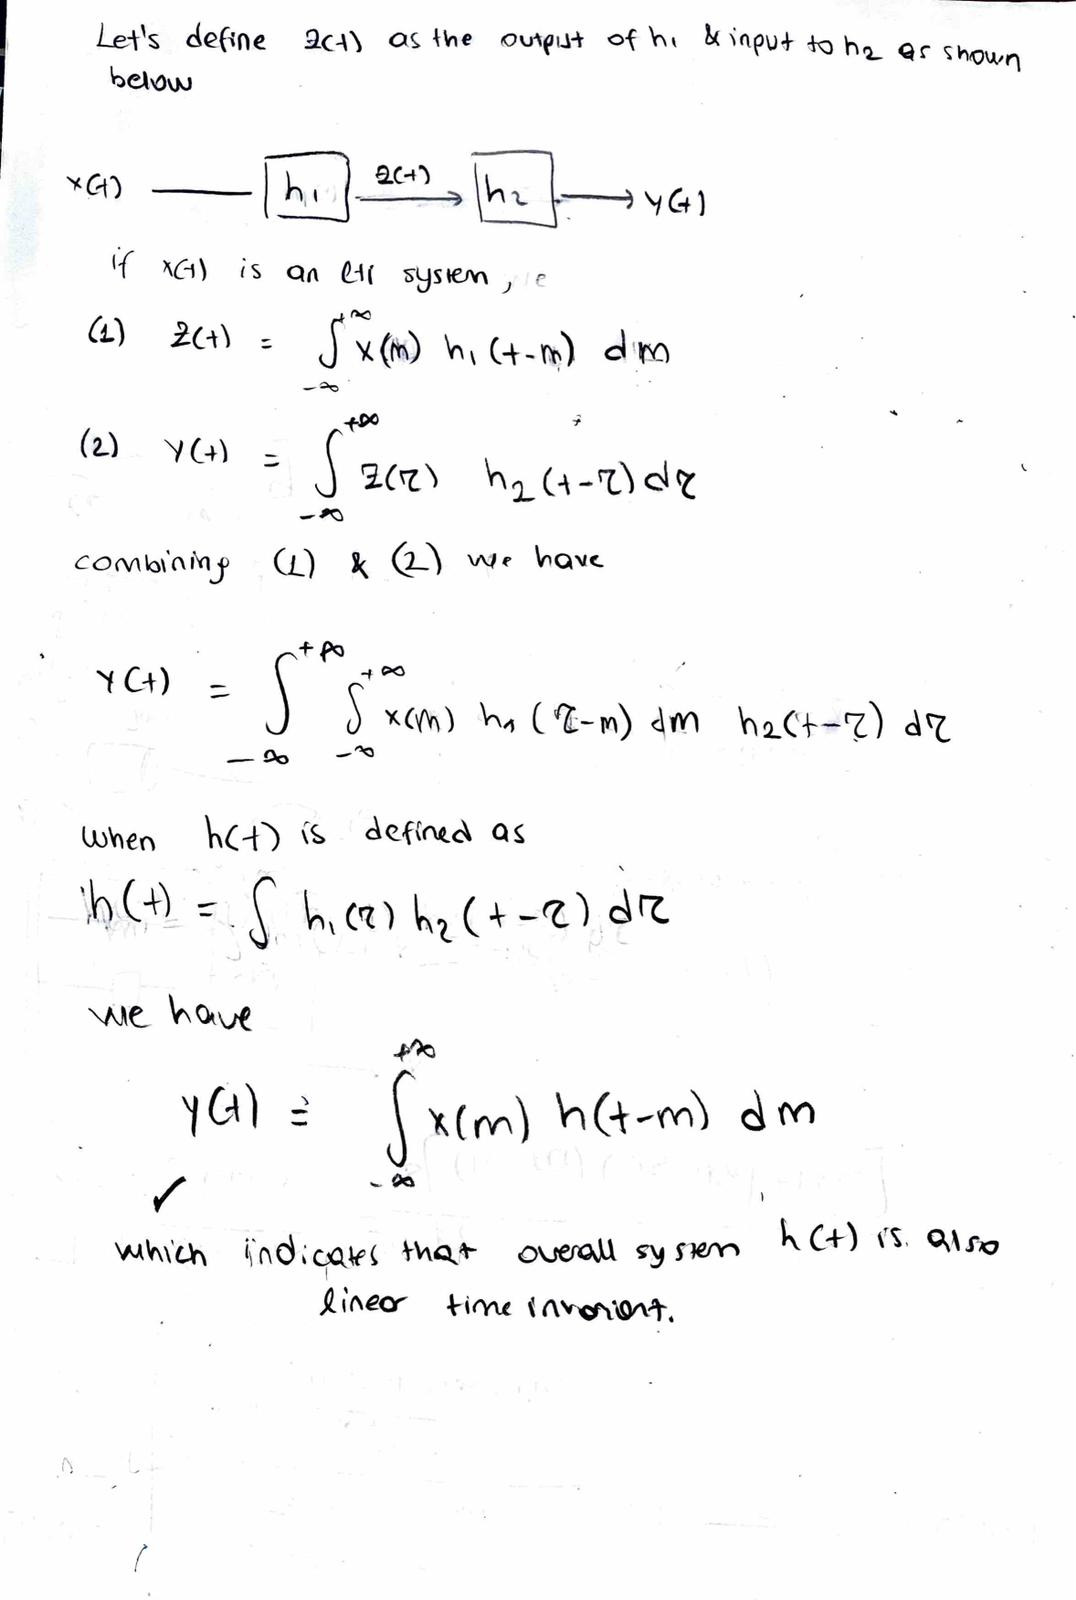 Let's define z(t) as the output of h₁ & input to h₂ as shown
below
x(t) h₁ z(t) h₂ y(t)
if x(t) is an lti system,
(1) z(t) = ∫_{-∞}^{+∞} x(m) h₁(t-m) dm
(2) y(t) = ∫_{-∞}^{+∞} z(τ) h₂(t-τ) dτ
combining (1) & (2) we have
y(t) = ∫_{-∞}^{+∞} ∫_{-∞}^{+∞} x(m) h₁(τ-m) dm h₂(t-τ) dτ
when h(t) is defined as
h(t) = ∫ h₁(τ) h₂(t-τ) dτ
we have
y(t) = ∫_{-∞}^{+∞} x(m) h(t-m) dm
✓
which indicates that overall system h(t) is also
linear time invarient.